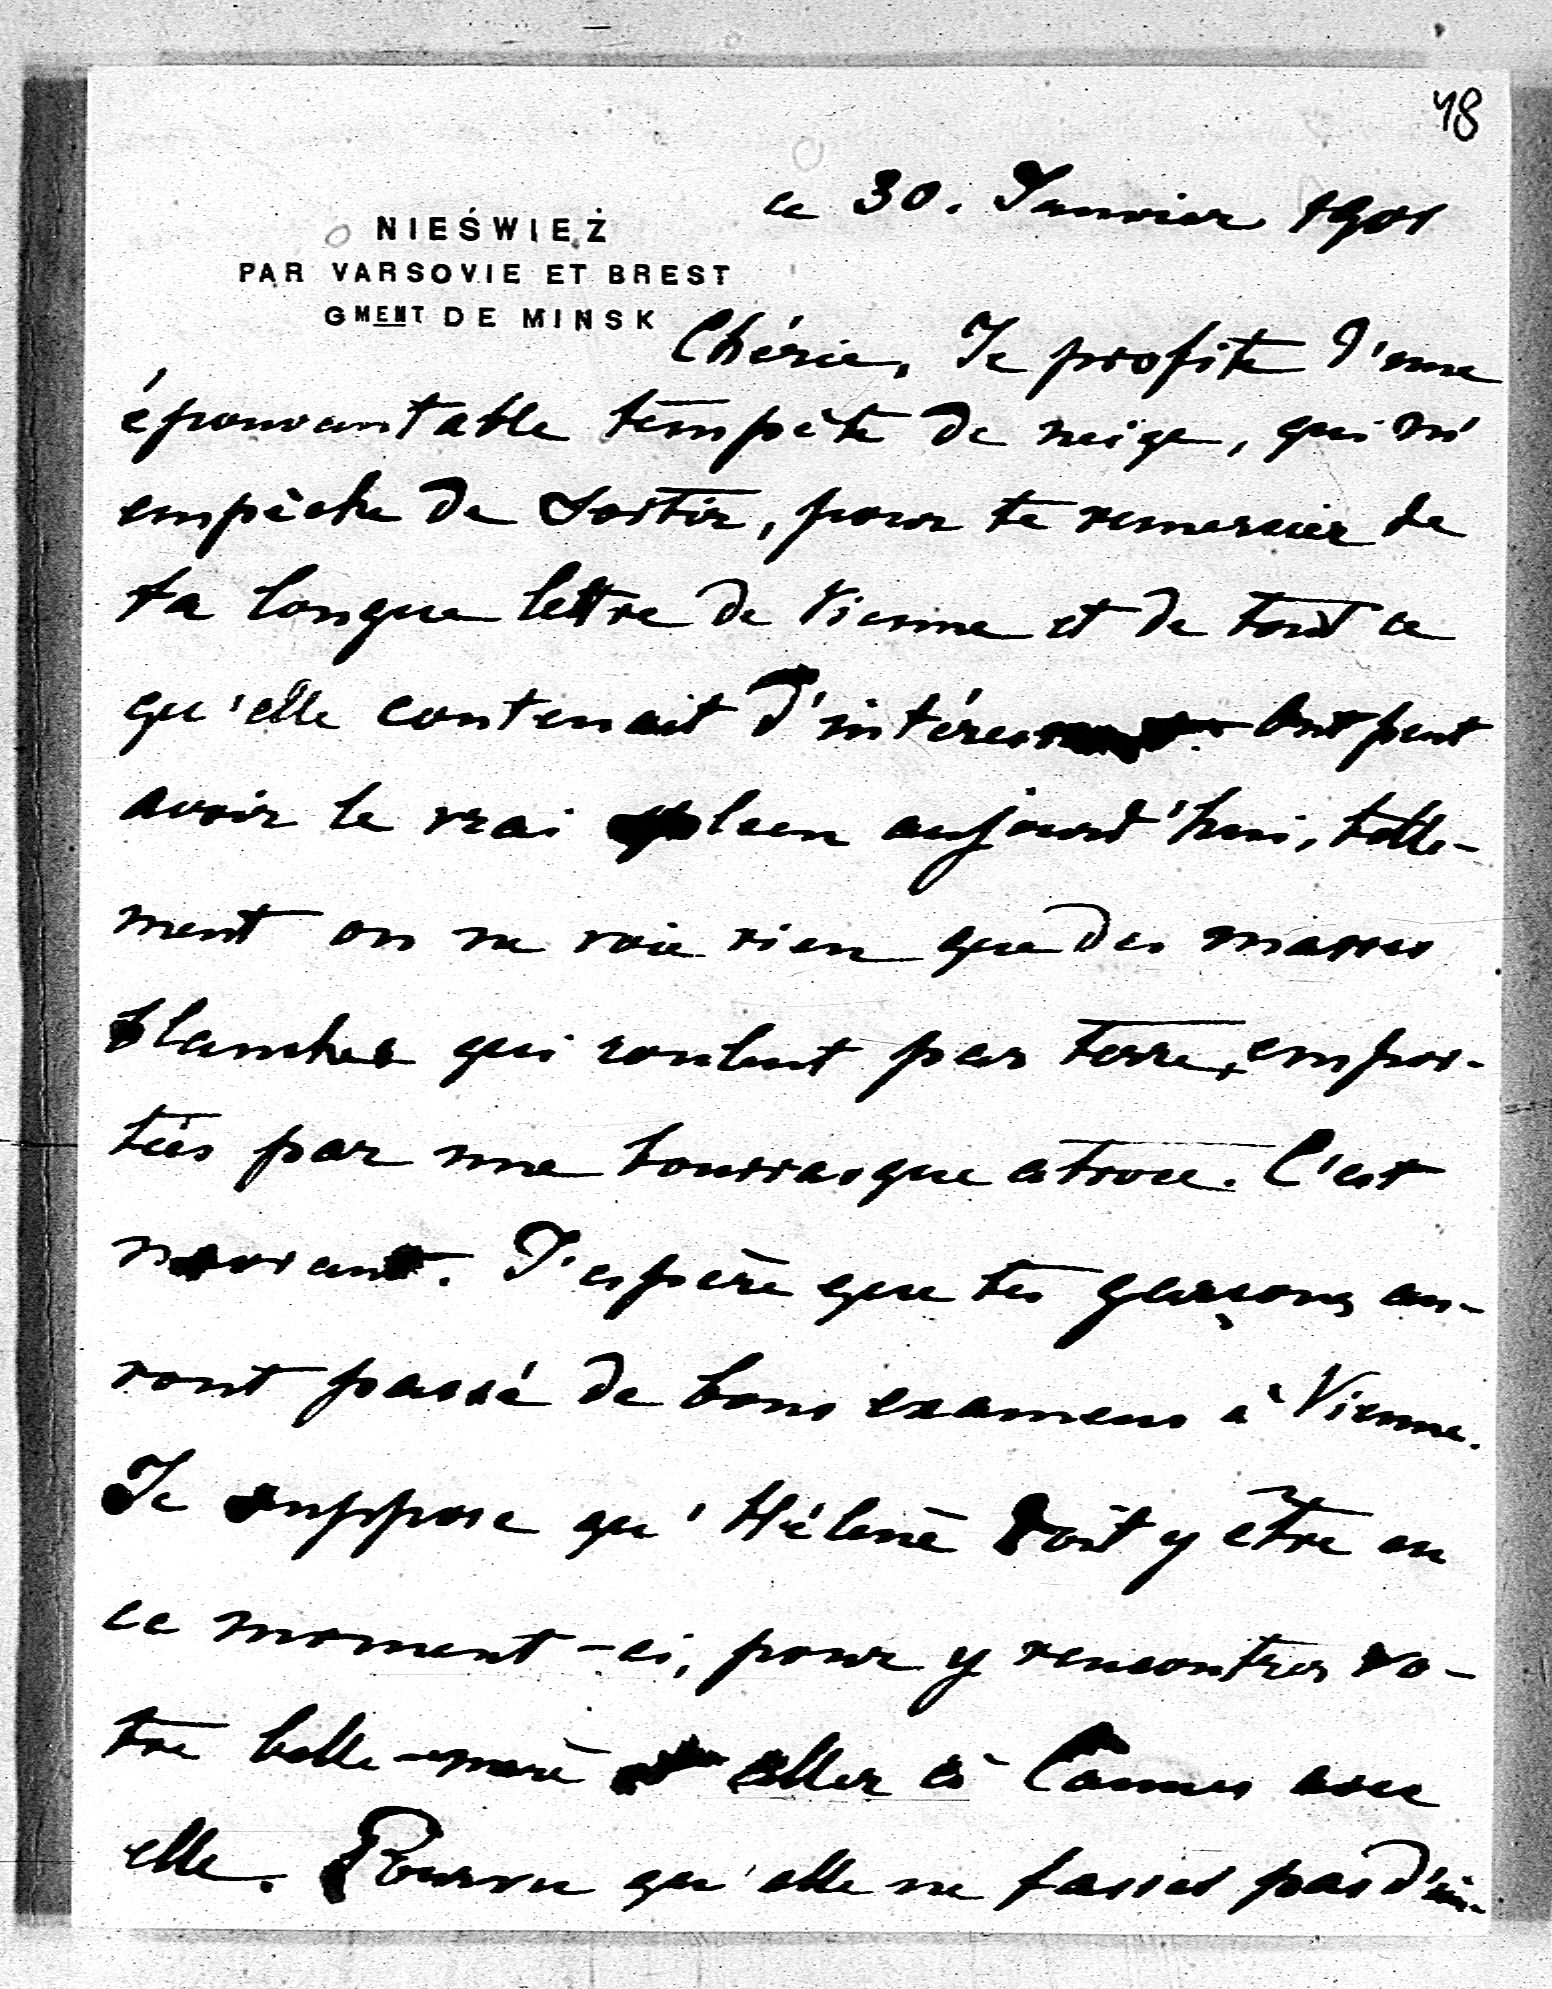 48
ce 30. Janvier 1901
NIEŚWIEŻ
PAR VARSOVIE ET BREST
GMENT DE MINSK
Chérie, Je profite d'une
épouvantable tempête de neige, qui m'
empêche de sortir, pour te remercier de
ta longue lettre de Vienne et de tout ce
qu'elle contenait d'intéressant. On peut
avoir le vrai spleen aujourd'hui, telle-
ment on ne voie rien que des masses
blanches qui roulent par terre, empor-
tées par une bourrasque atroce. C'est
navrant. J'espère que tes garçons au-
ront passé de bons examens à Vienne.
Je suppose qu'Hélène doit y être en
ce moment-ci, pour y rencontrer vo-
tre belle-mère et aller à Cannes avec
elle. Pourvu qu'elle ne fasses pas d'im-